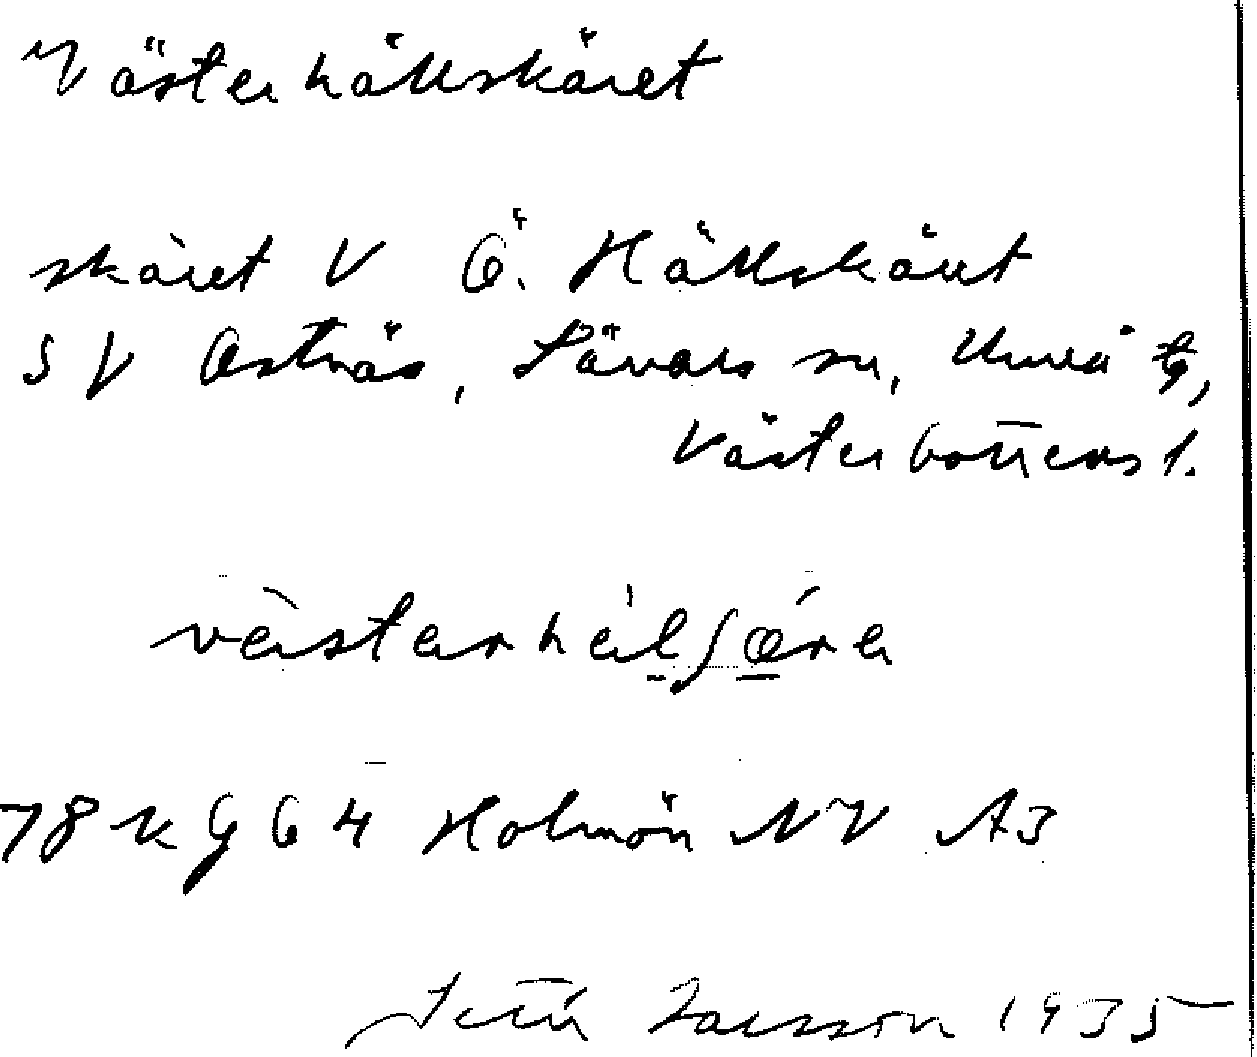 Västerhällskäret
skäret V Ö. Hällskäret
SV Ostnäs, Sävars sn, Umeå tg,
Västerbottens l.
västerhälʃæra
78 kg 64 Holmön NV A3
Set‌h Larsson 1935